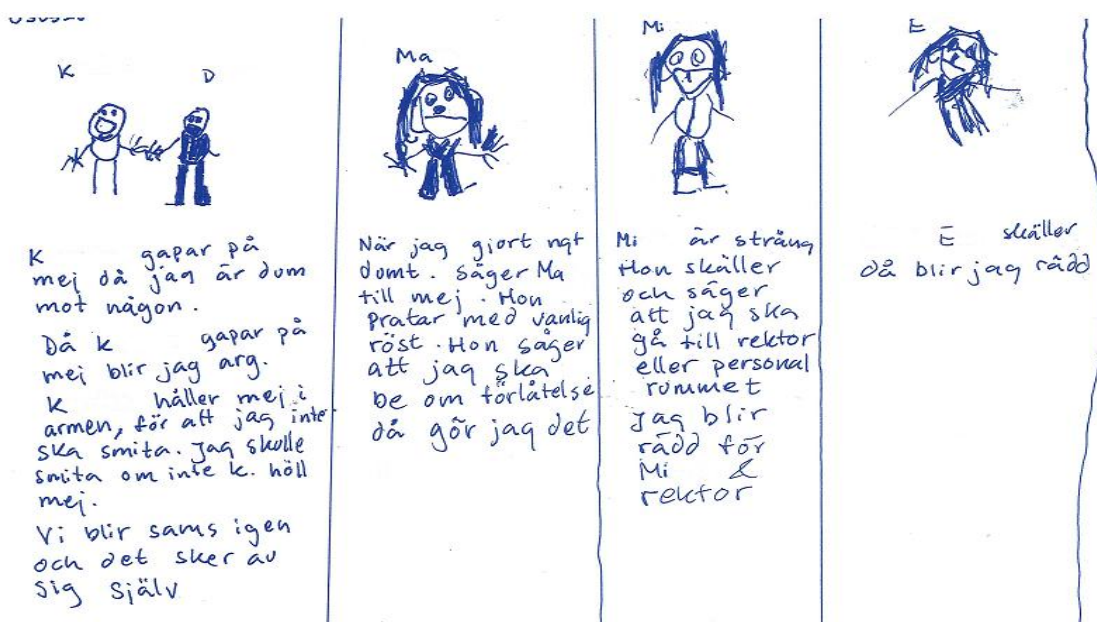 K D
K gapar på
mej då jag är dum
mot någon.
Då K gapar på
mej blir jag arg.
K håller mej i
armen, för att jag inte
ska smita. Jag skulle
smita om inte k. höll
mej.
Vi blir sams igen
och det sker av
sig själv
Ma
När jag gjort ngt
dumt. säger Ma
till mej. Hon
pratar med vanlig
röst. Hon säger
att jag ska
be om förlåtelse
då gör jag det
Mi
Mi är sträng
Hon skäller
och säger
att jag ska
gå till rektor
eller personal
rummet
Jag blir
rädd för
Mi &
rektor
E
E skäller
då blir jag rädd